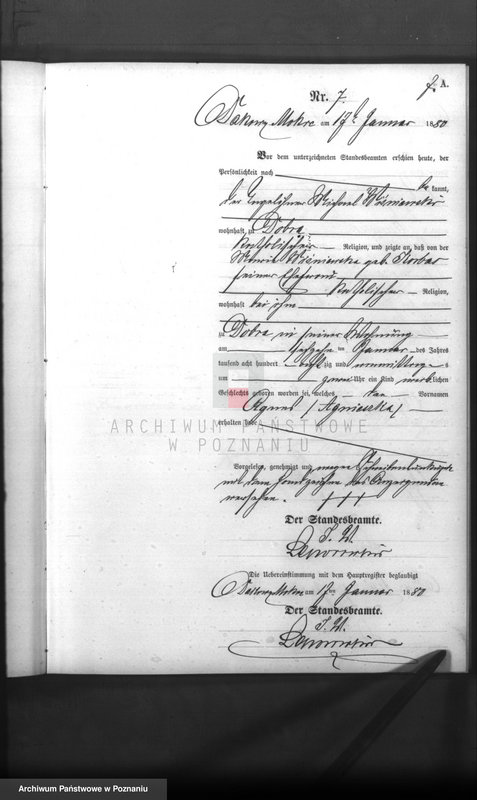 A.
Nr. 7.
Dakowy Mokre am 17ten Januar 1880
Vor dem unterzeichneten Standesbeamten erschien heute, der
Persönlichkeit nach be kannt,
der Tagelöhner Michael Wiśniewski
wohnhaft zu Dobra
katholischer Religion, und zeigte an, daß von der
Wiśniewska geb.
seiner Ehefrau
katholischer Religion,
wohnhaft bei ihm
zu Dobra in seiner Wohnung
am ten Januar des Jahres
tausend acht hundert achtzig und s
um Uhr ein Kind weiblichen
Geschlechts geboren worden sei, welches den Vornamen
Agnes /Agnieszka/
erhalten habe
ARCHIWUM PAŃSTWOWE
W POZNANIU
Vorgelesen, genehmigt und wegen
mit dem Handzeichen des
versehen. +++
Der Standesbeamte.
Die Uebereinstimmung mit dem Hauptregister beglaubigt
Dakowy Mokre am 17ten Januar 1880
Der Standesbeamte.
Archiwum Państwowe w Poznaniu